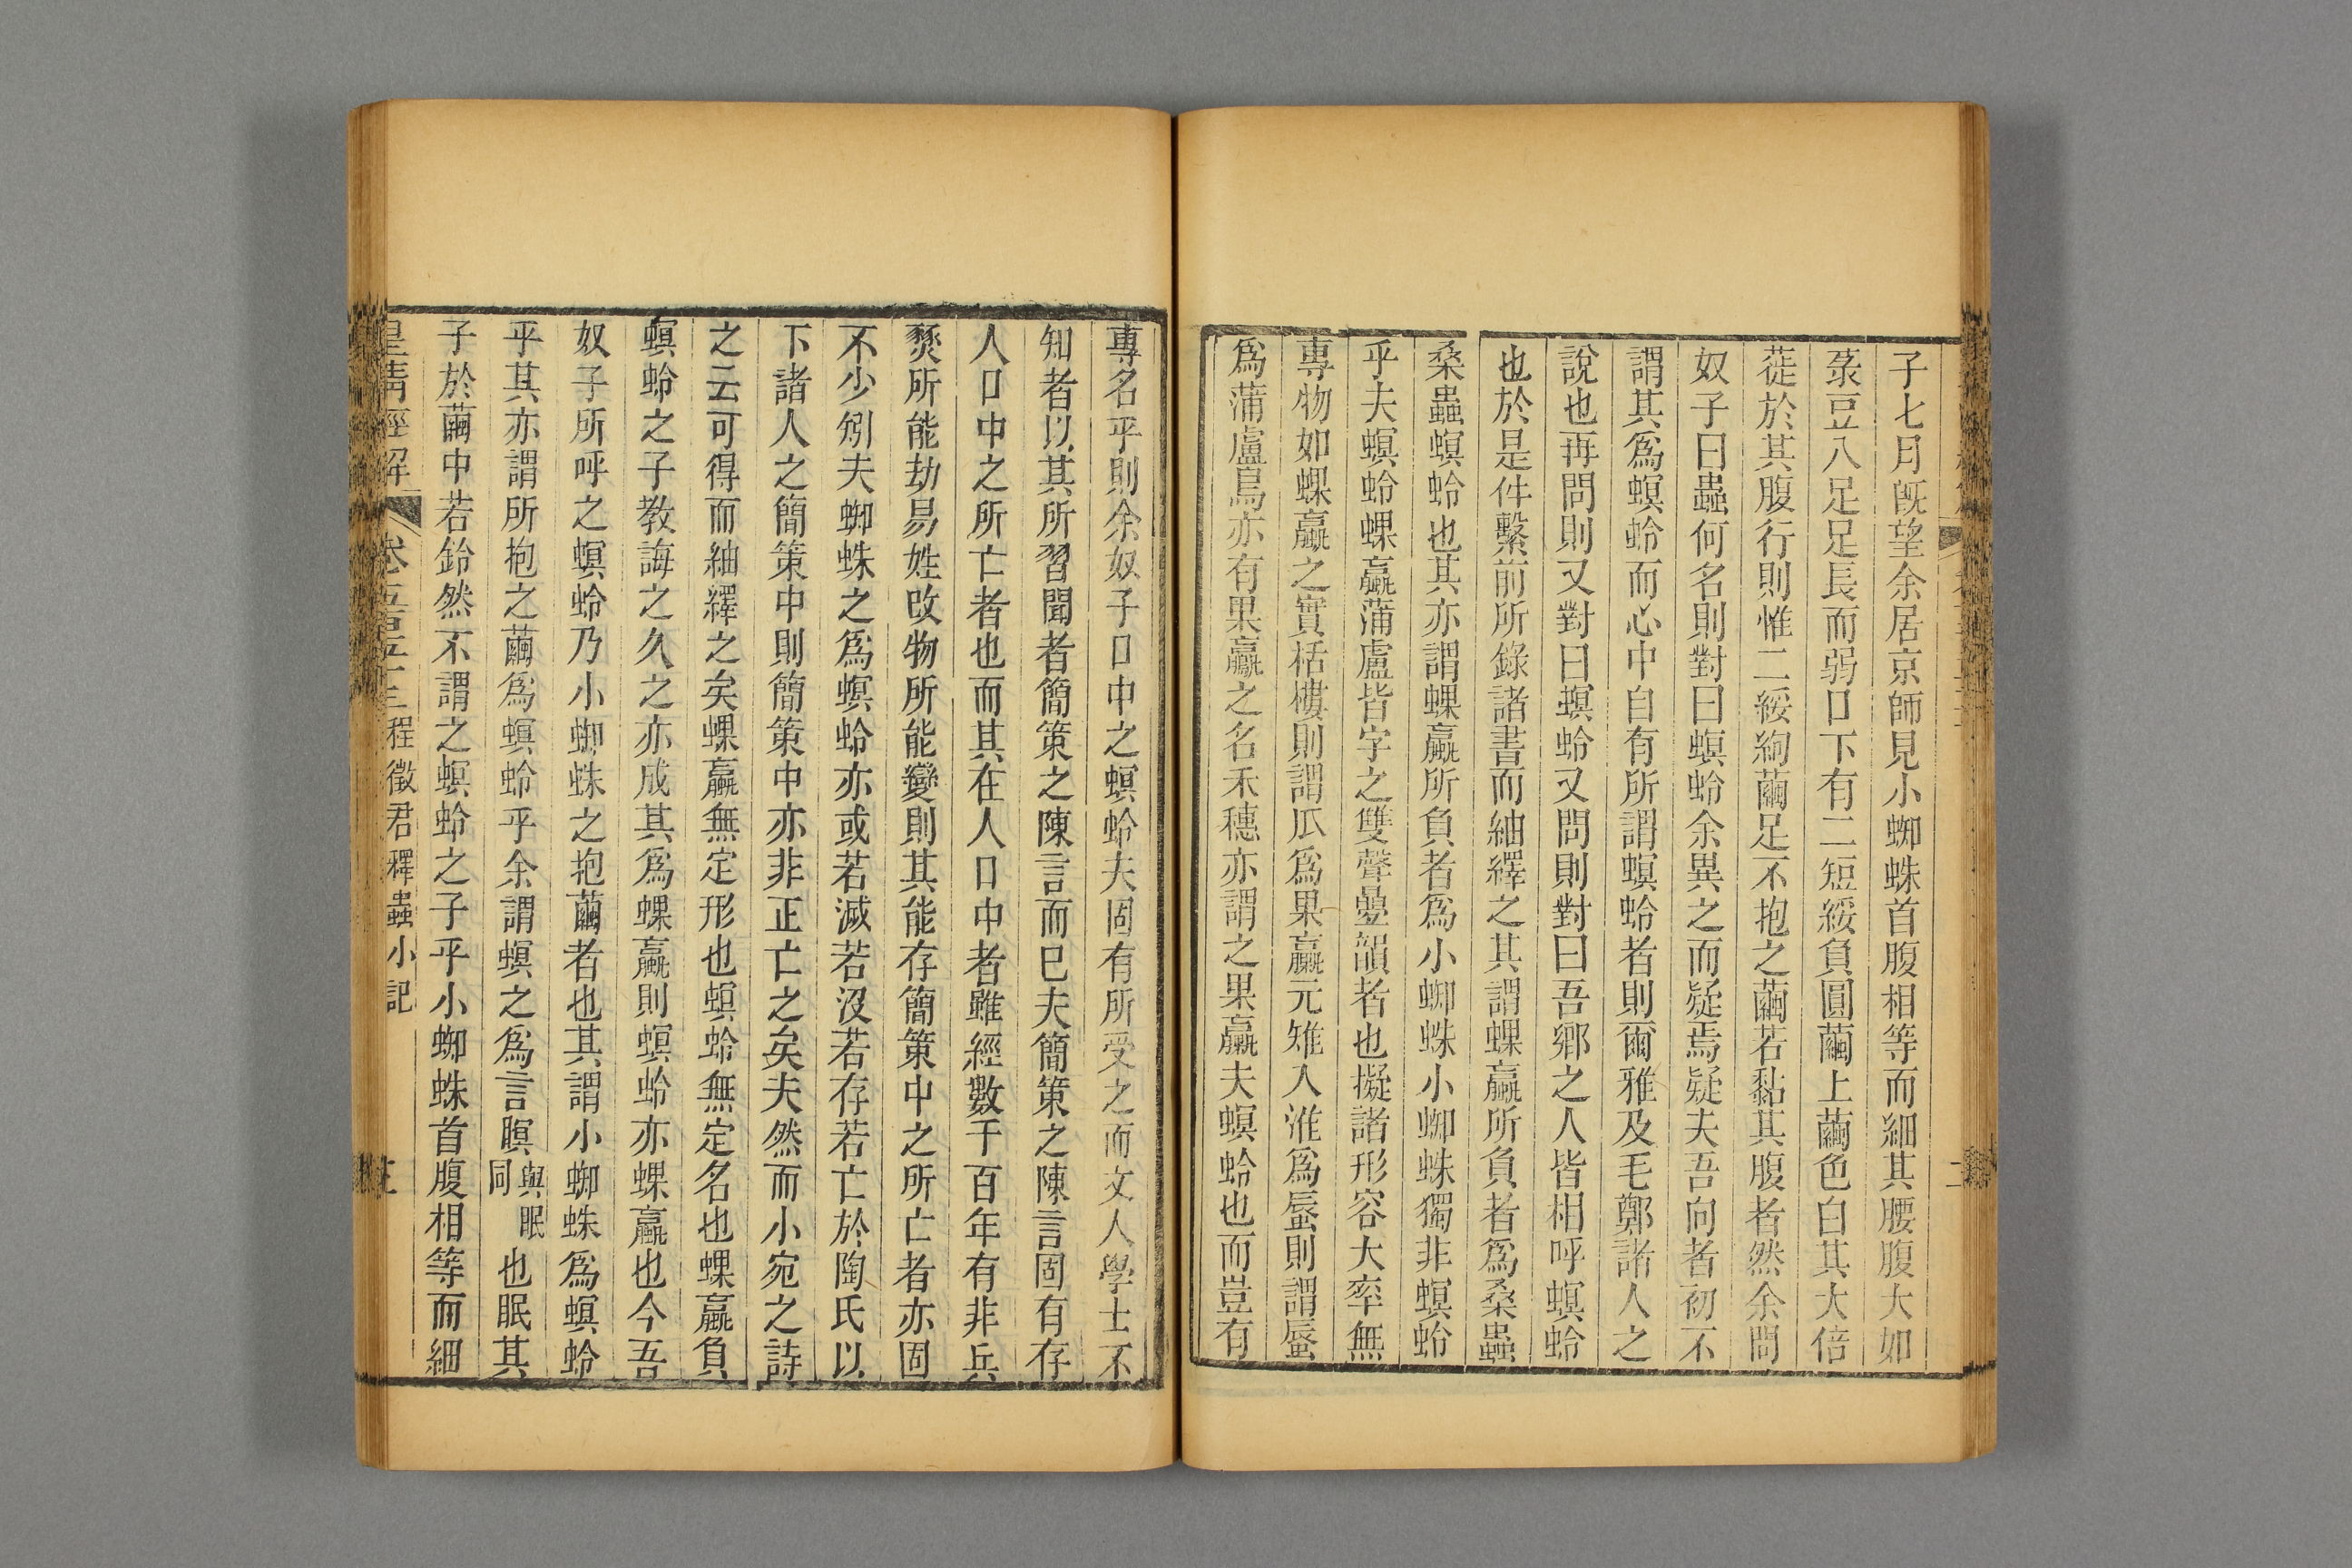 子七月旣望余居京師見小蜘蛛首腹相等而細其腰腹大如
菉豆八足足長而弱口下有二短綏負圓繭上繭色白其大倍
蓰於其腹行則惟二綏絇繭足不抱之繭若黏其腹者然余問
奴子曰蟲何名則對曰螟蛉余異之而疑焉疑夫吾向者初不
謂其爲螟蛉而心中自有所謂螟蛉者則爾雅及毛鄭諸人之
說也再問則又對曰螟蛉又問則對曰吾鄕之人皆相呼螟蛉
也於是件繫前所錄諸書而紬繹之其謂蜾蠃所負者爲桑蟲
桑蟲螟蛉也其亦謂蜾蠃所負者爲小蜘蛛小蜘蛛獨非螟蛉
乎夫螟蛉蜾蠃蒲盧皆字之雙聲疊韻者也擬諸形容大率無
專物如蜾蠃之實栝樓則謂瓜爲果蠃元雉入淮爲蜃則謂蜃
爲蒲盧鳥亦有果蠃之名禾穗亦謂之果蠃夫螟蛉也而豈有
專名乎則余奴子口中之螟蛉夫固有所受之而文人學士不
知者以其所習聞者簡策之陳言而已夫簡策之陳言固有存
人口中之所亡者也而其在人口中者雖經數千百年有非兵
燹所能劫易姓改物所能變則其能存簡策中之所亡者亦固
不少矧夫蜘蛛之爲螟蛉亦或若滅若沒若存若亡於陶氏以
下諸人之簡策中則簡策中亦非正亡之矣夫然而小宛之詩
之云可得而紬繹之矣蜾蠃無定形也螟蛉無定名也蜾蠃負
螟蛉之子教誨之久之亦成其爲蜾蠃則螟蛉亦蜾蠃也今吾
奴子所呼之螟蛉乃小蜘蛛之抱繭者也其謂小蜘蛛爲螟蛉
乎其亦謂所抱之繭爲螟蛉乎余謂螟之爲言瞑與眠同也眠其
子於繭中若鈴然不謂之螟蛉之子乎小蜘蛛首腹相等而細
皇清經解 卷五百五十三 程徵君釋蟲小記